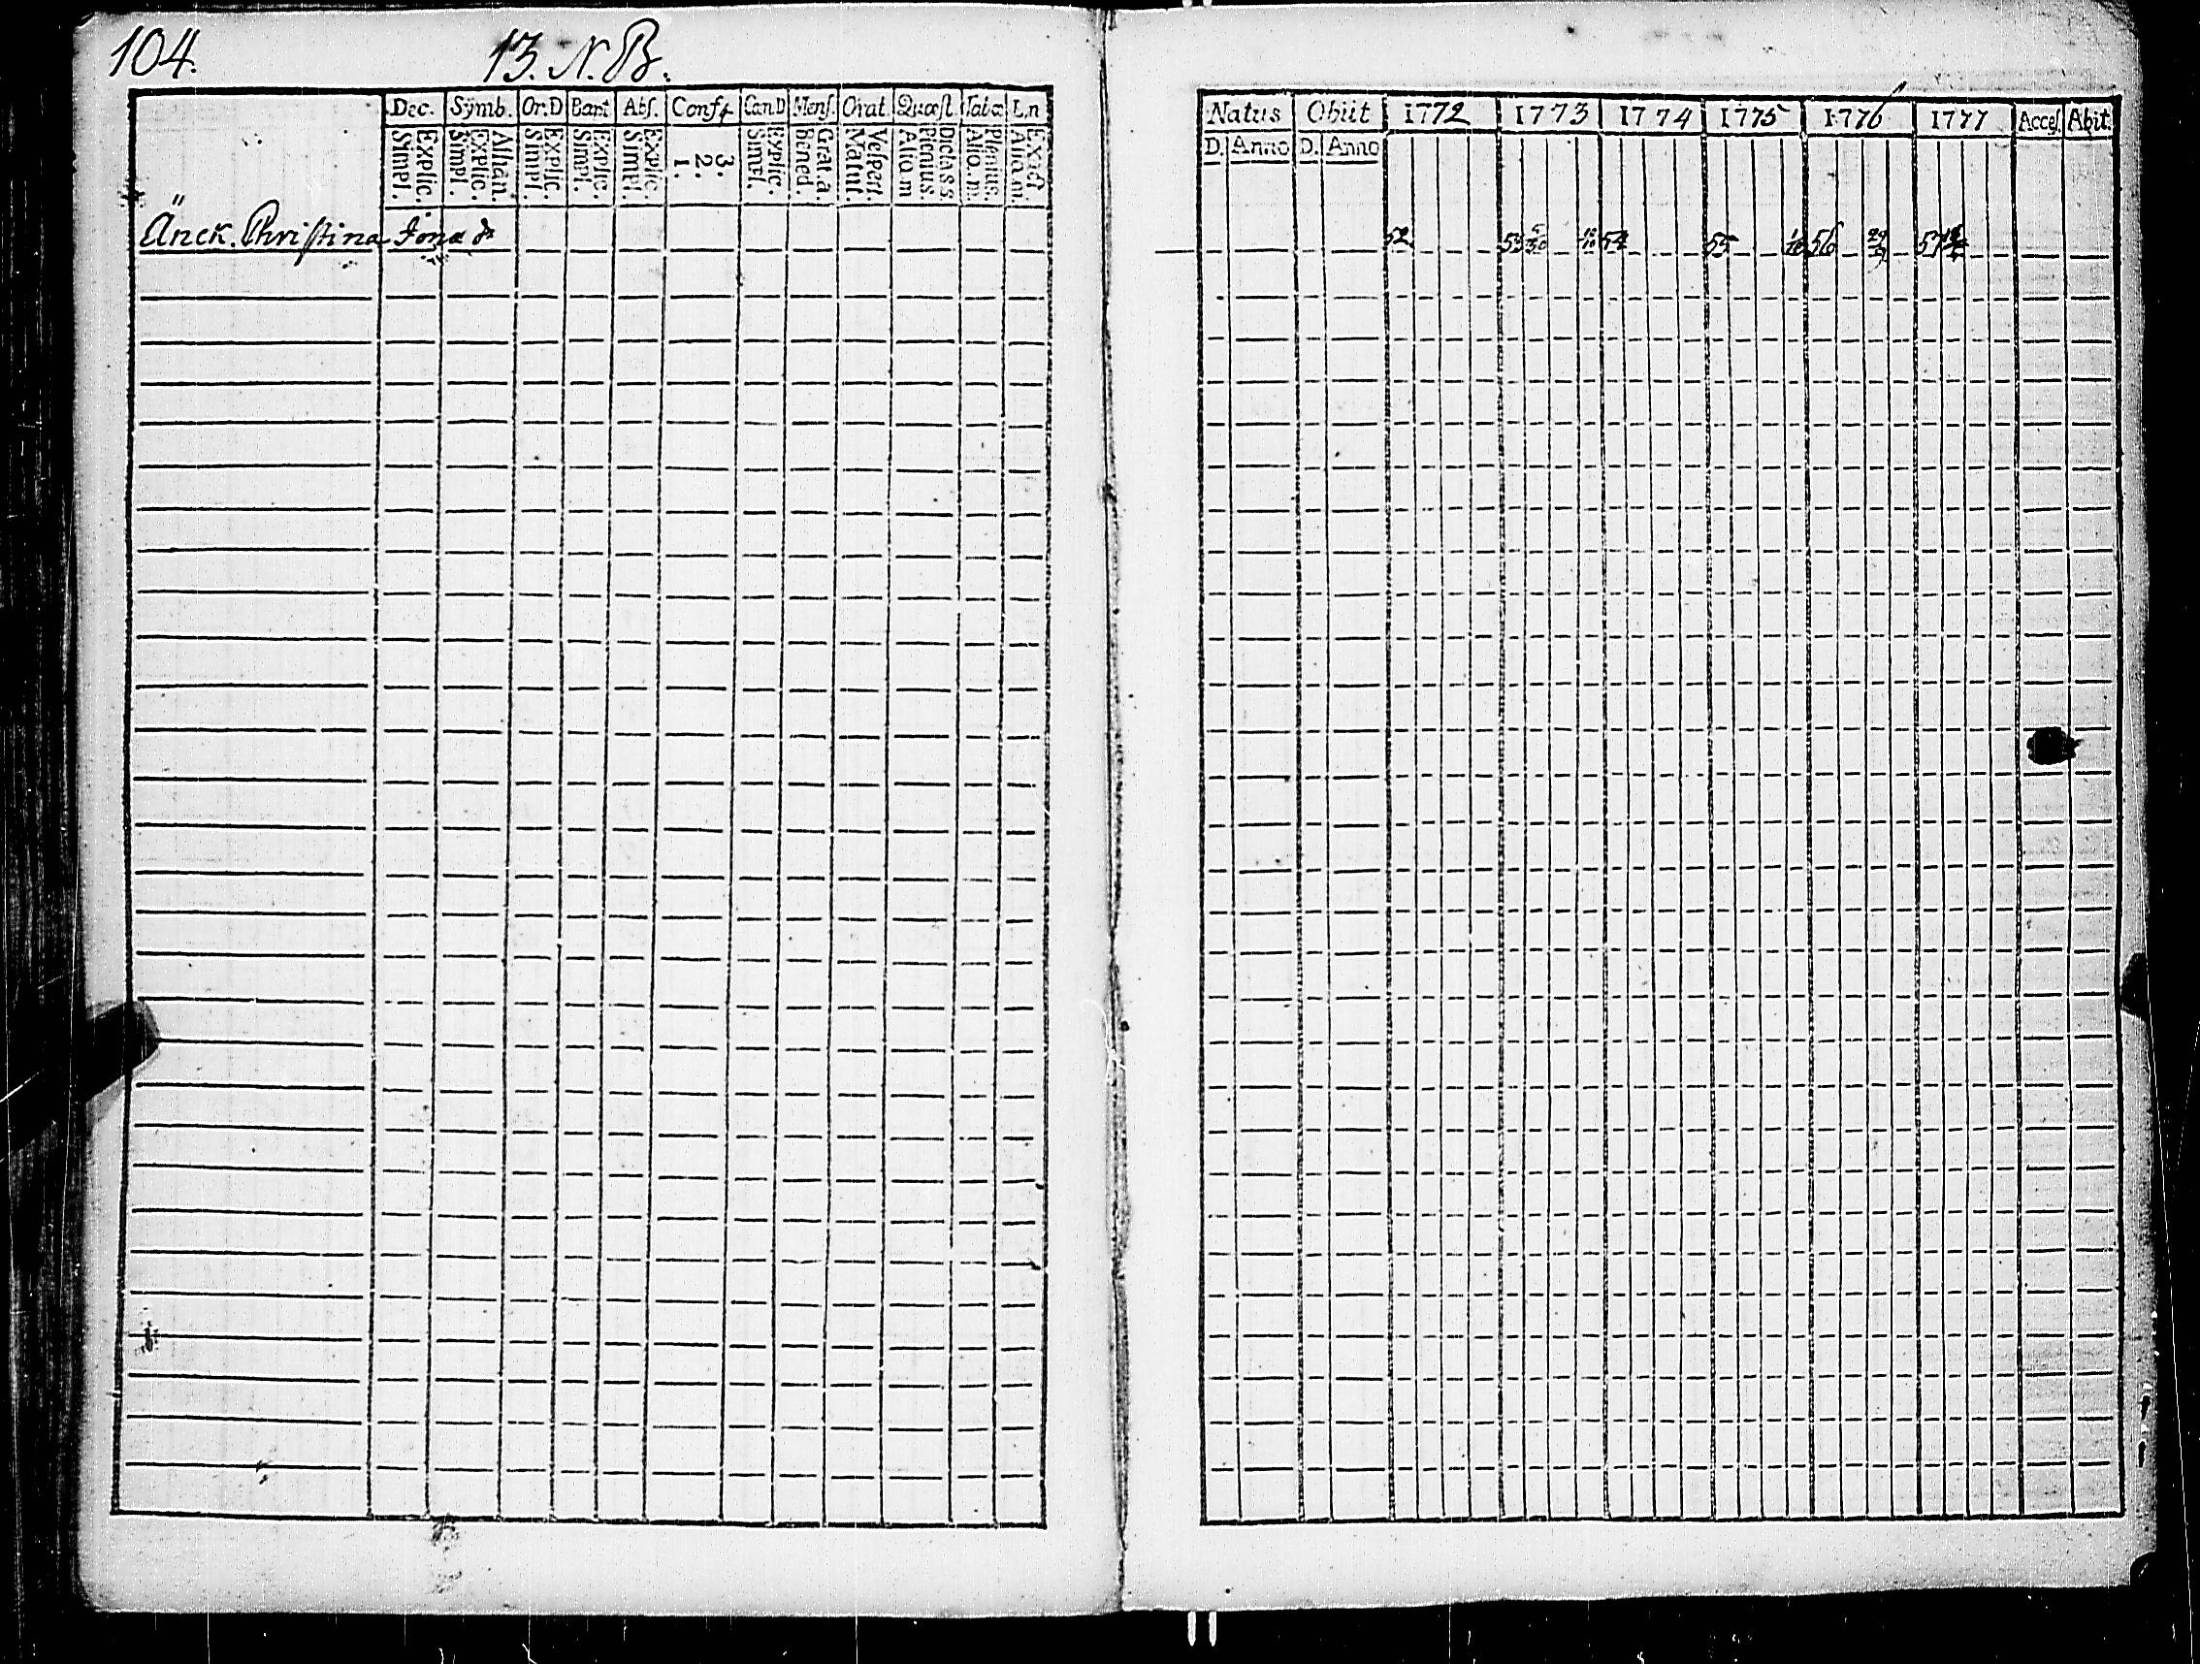 104. 13. N. B.
Dec. Symb. Or.D Bapt Abs. Conf Can.D Mens Orat Quæst Tab.œ L.n
Explic. Simpl. Athan. Explic. Simpl. Explic. Simpl. Explic. Simpl. Explic. Simpl. 3. 2. 1. Explic. Simpl. Grat.a. Bened. Vespert. Matut. Dictass Plenius. Aliq.m Plenius. Aliq.m. Exact Aliq.m
Änck. Christina Jonæ dr
Natus Obiit 1772 1773 1774 1775 1776 1777 Acces. Abit.
D. Anno D. Anno
52 53 54 55 56 57